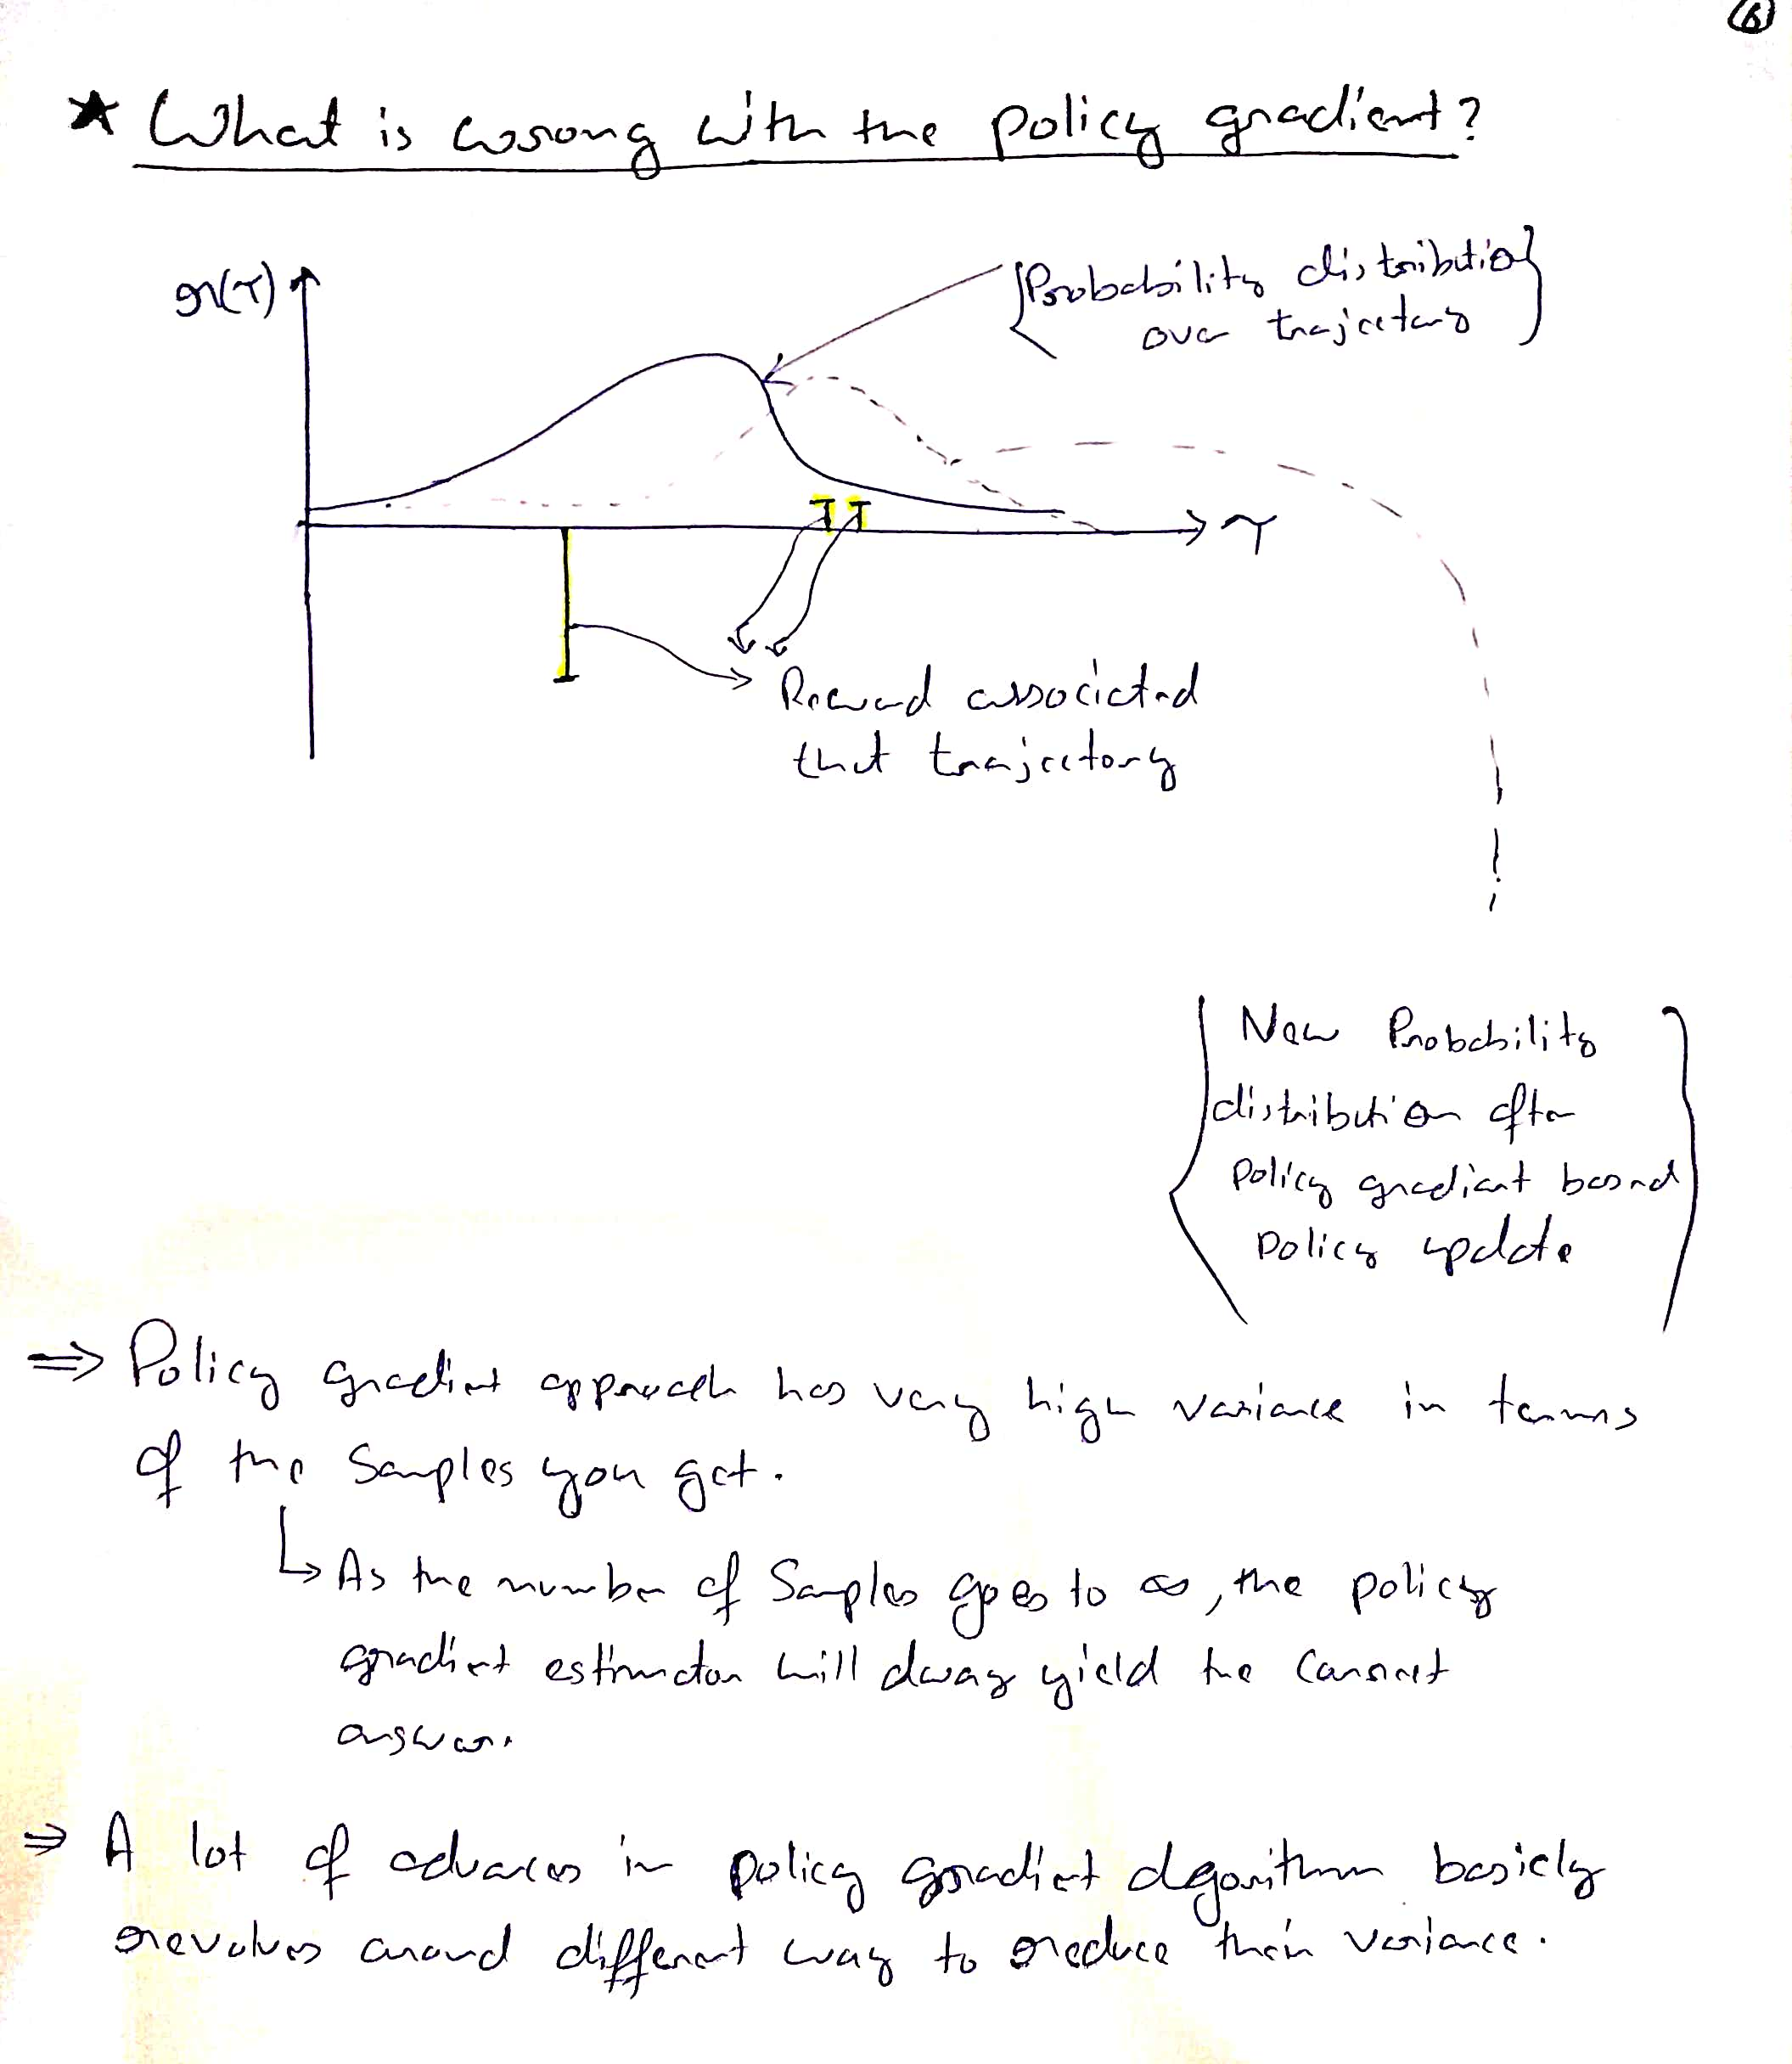 6
★ What is wrong with the policy gradient?
r(τ)
{Probability distribution}
over trajectory
τ
Reward associated
that trajectory
New Probability
distribution after
Policy gradient based
Policy update
⇒ Policy gradient approach has very high variance in terms
of the samples you get.
↳ As the number of samples goes to ∞, the policy
gradient estimator will alway yield the correct
answer.
⇒ A lot of advances in policy gradient algorithm basicly
revolves around different way to reduce their variance.